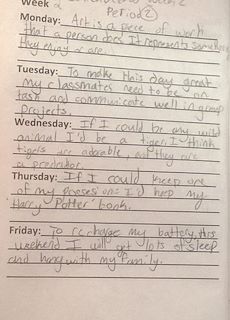 Week 2
Period 2
Monday: Art is a piece of work
that a person does It represents something
they may or are.
Tuesday: To make this day great
my classmates need to be on
task and communicate well in group
projects.
Wednesday: If I could be any wild
animal I'd be a tiger. I think
tigers are adorable, but they are
a predator.
Thursday: If I could keep one
of my possesions I'd keep my
Harry Potter book.
Friday: To recharge my battery this
weekend I will get lots of sleep
and hang with my family.